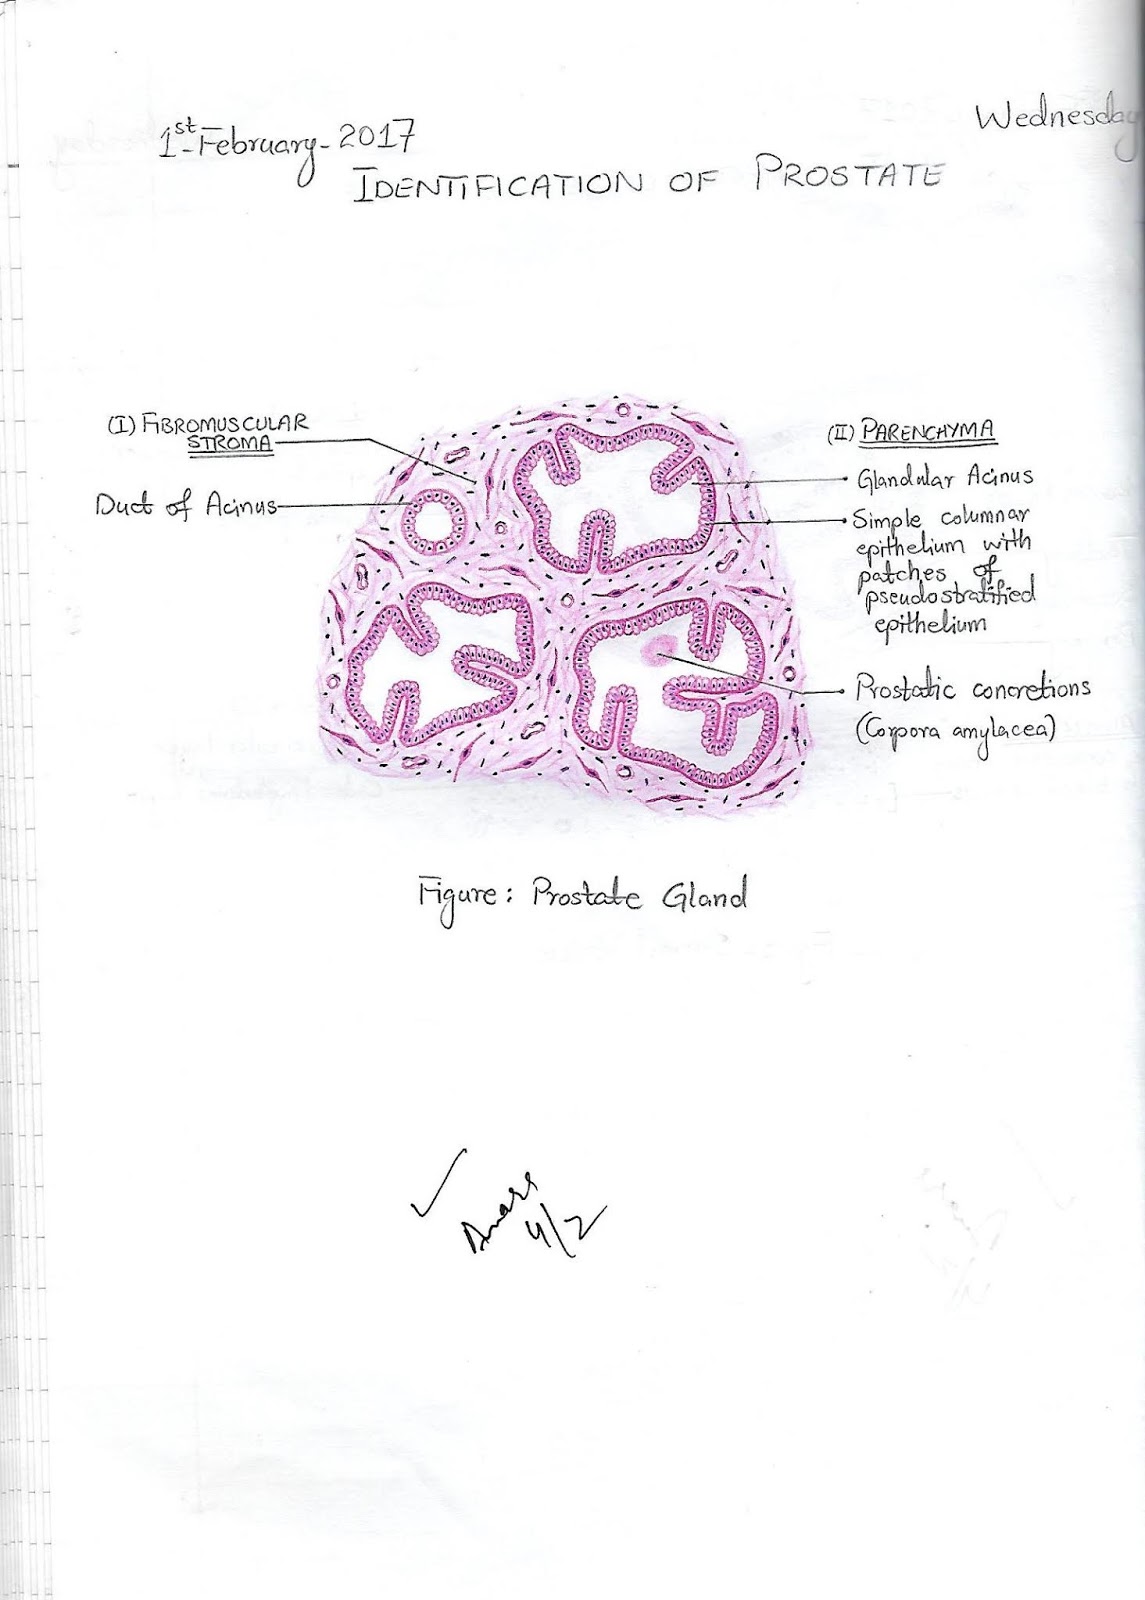 1st-February-2017
Wednesday
IDENTIFICATION OF PROSTATE
(I) FIBROMUSCULAR
STROMA
Duct of Acinus
(II) PARENCHYMA
Glandular Acinus
Simple columnar
epithelium with
patches of
pseudostratified
epithelium
Prostatic concretions
(Corpora amylacea)
Figure: Prostate Gland
4/2